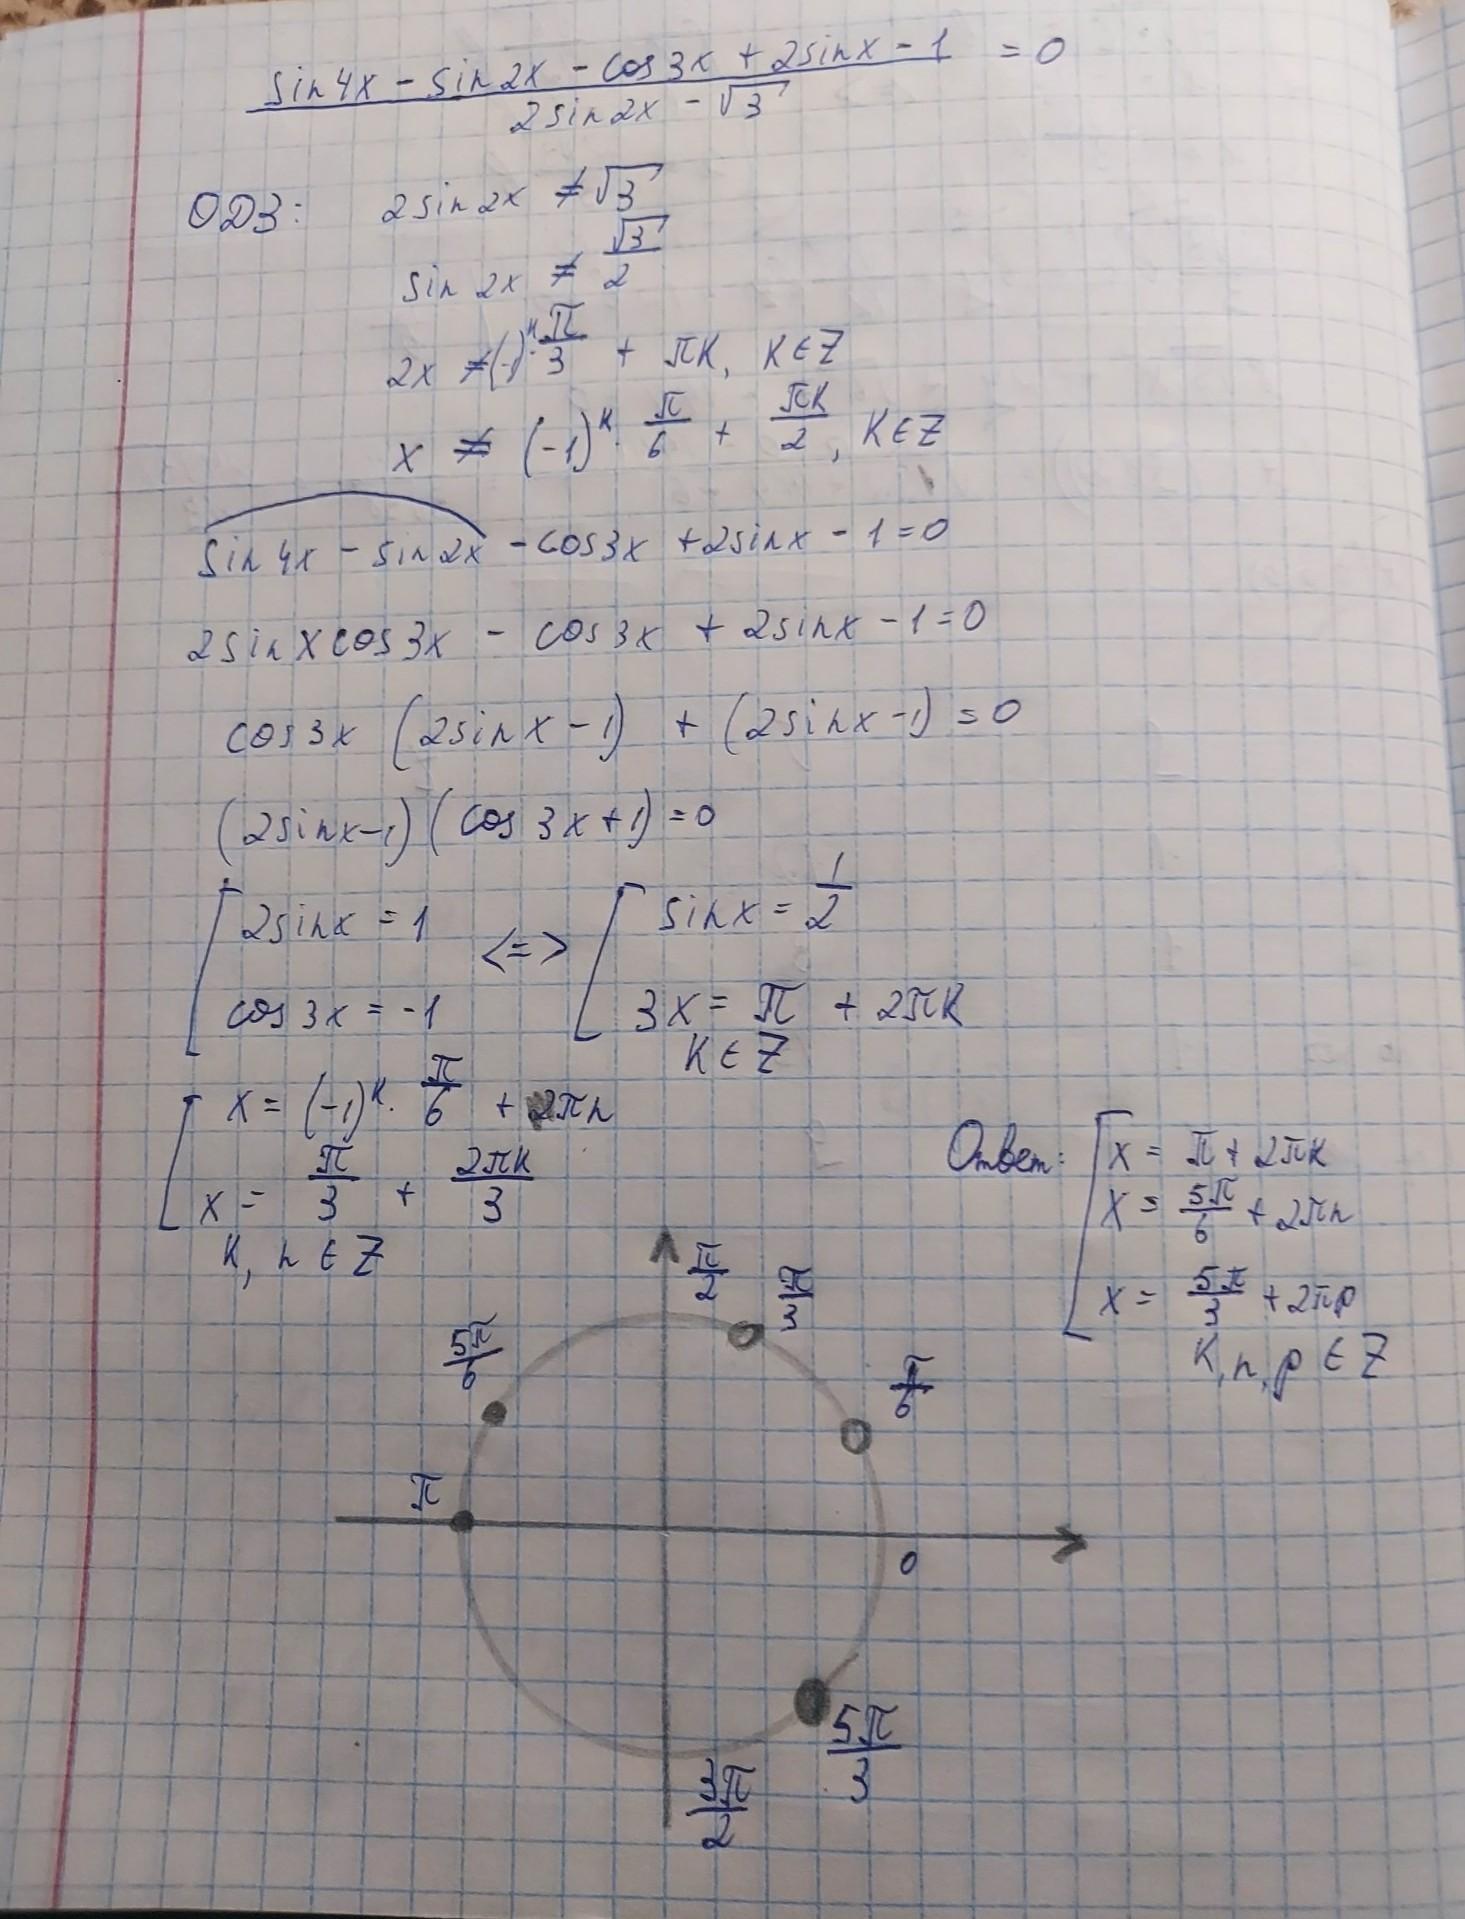 sin4x - sin2x - cos3x + 2sinx - 1 = 0
2sin2x - √3
ОДЗ: 2sin2x ≠ √3
sin2x ≠ √3/2
2x ≠ (-1)^k · π/3 + πk, k∈Z
x ≠ (-1)^k · π/6 + πk/2, k∈Z
sin4x - sin2x - cos3x + 2sinx - 1 = 0
2sinxcos3x - cos3x + 2sinx - 1 = 0
cos3x (2sinx - 1) + (2sinx - 1) = 0
(2sinx - 1)(cos3x + 1) = 0
[ 2sinx = 1 <=> [ sinx = 1/2
cos3x = -1 3x = π + 2πk
k∈Z
[ x = (-1)^k · π/6 + 2πn
x = π/3 + 2πk/3
k, n ∈ Z
Ответ: [ x = π + 2πk
x = 5π/6 + 2πn
x = 5π/3 + 2πp
k, n, p ∈ Z
π/2
π/3
5π/6
π/6
π
0
5π/3
3π/2